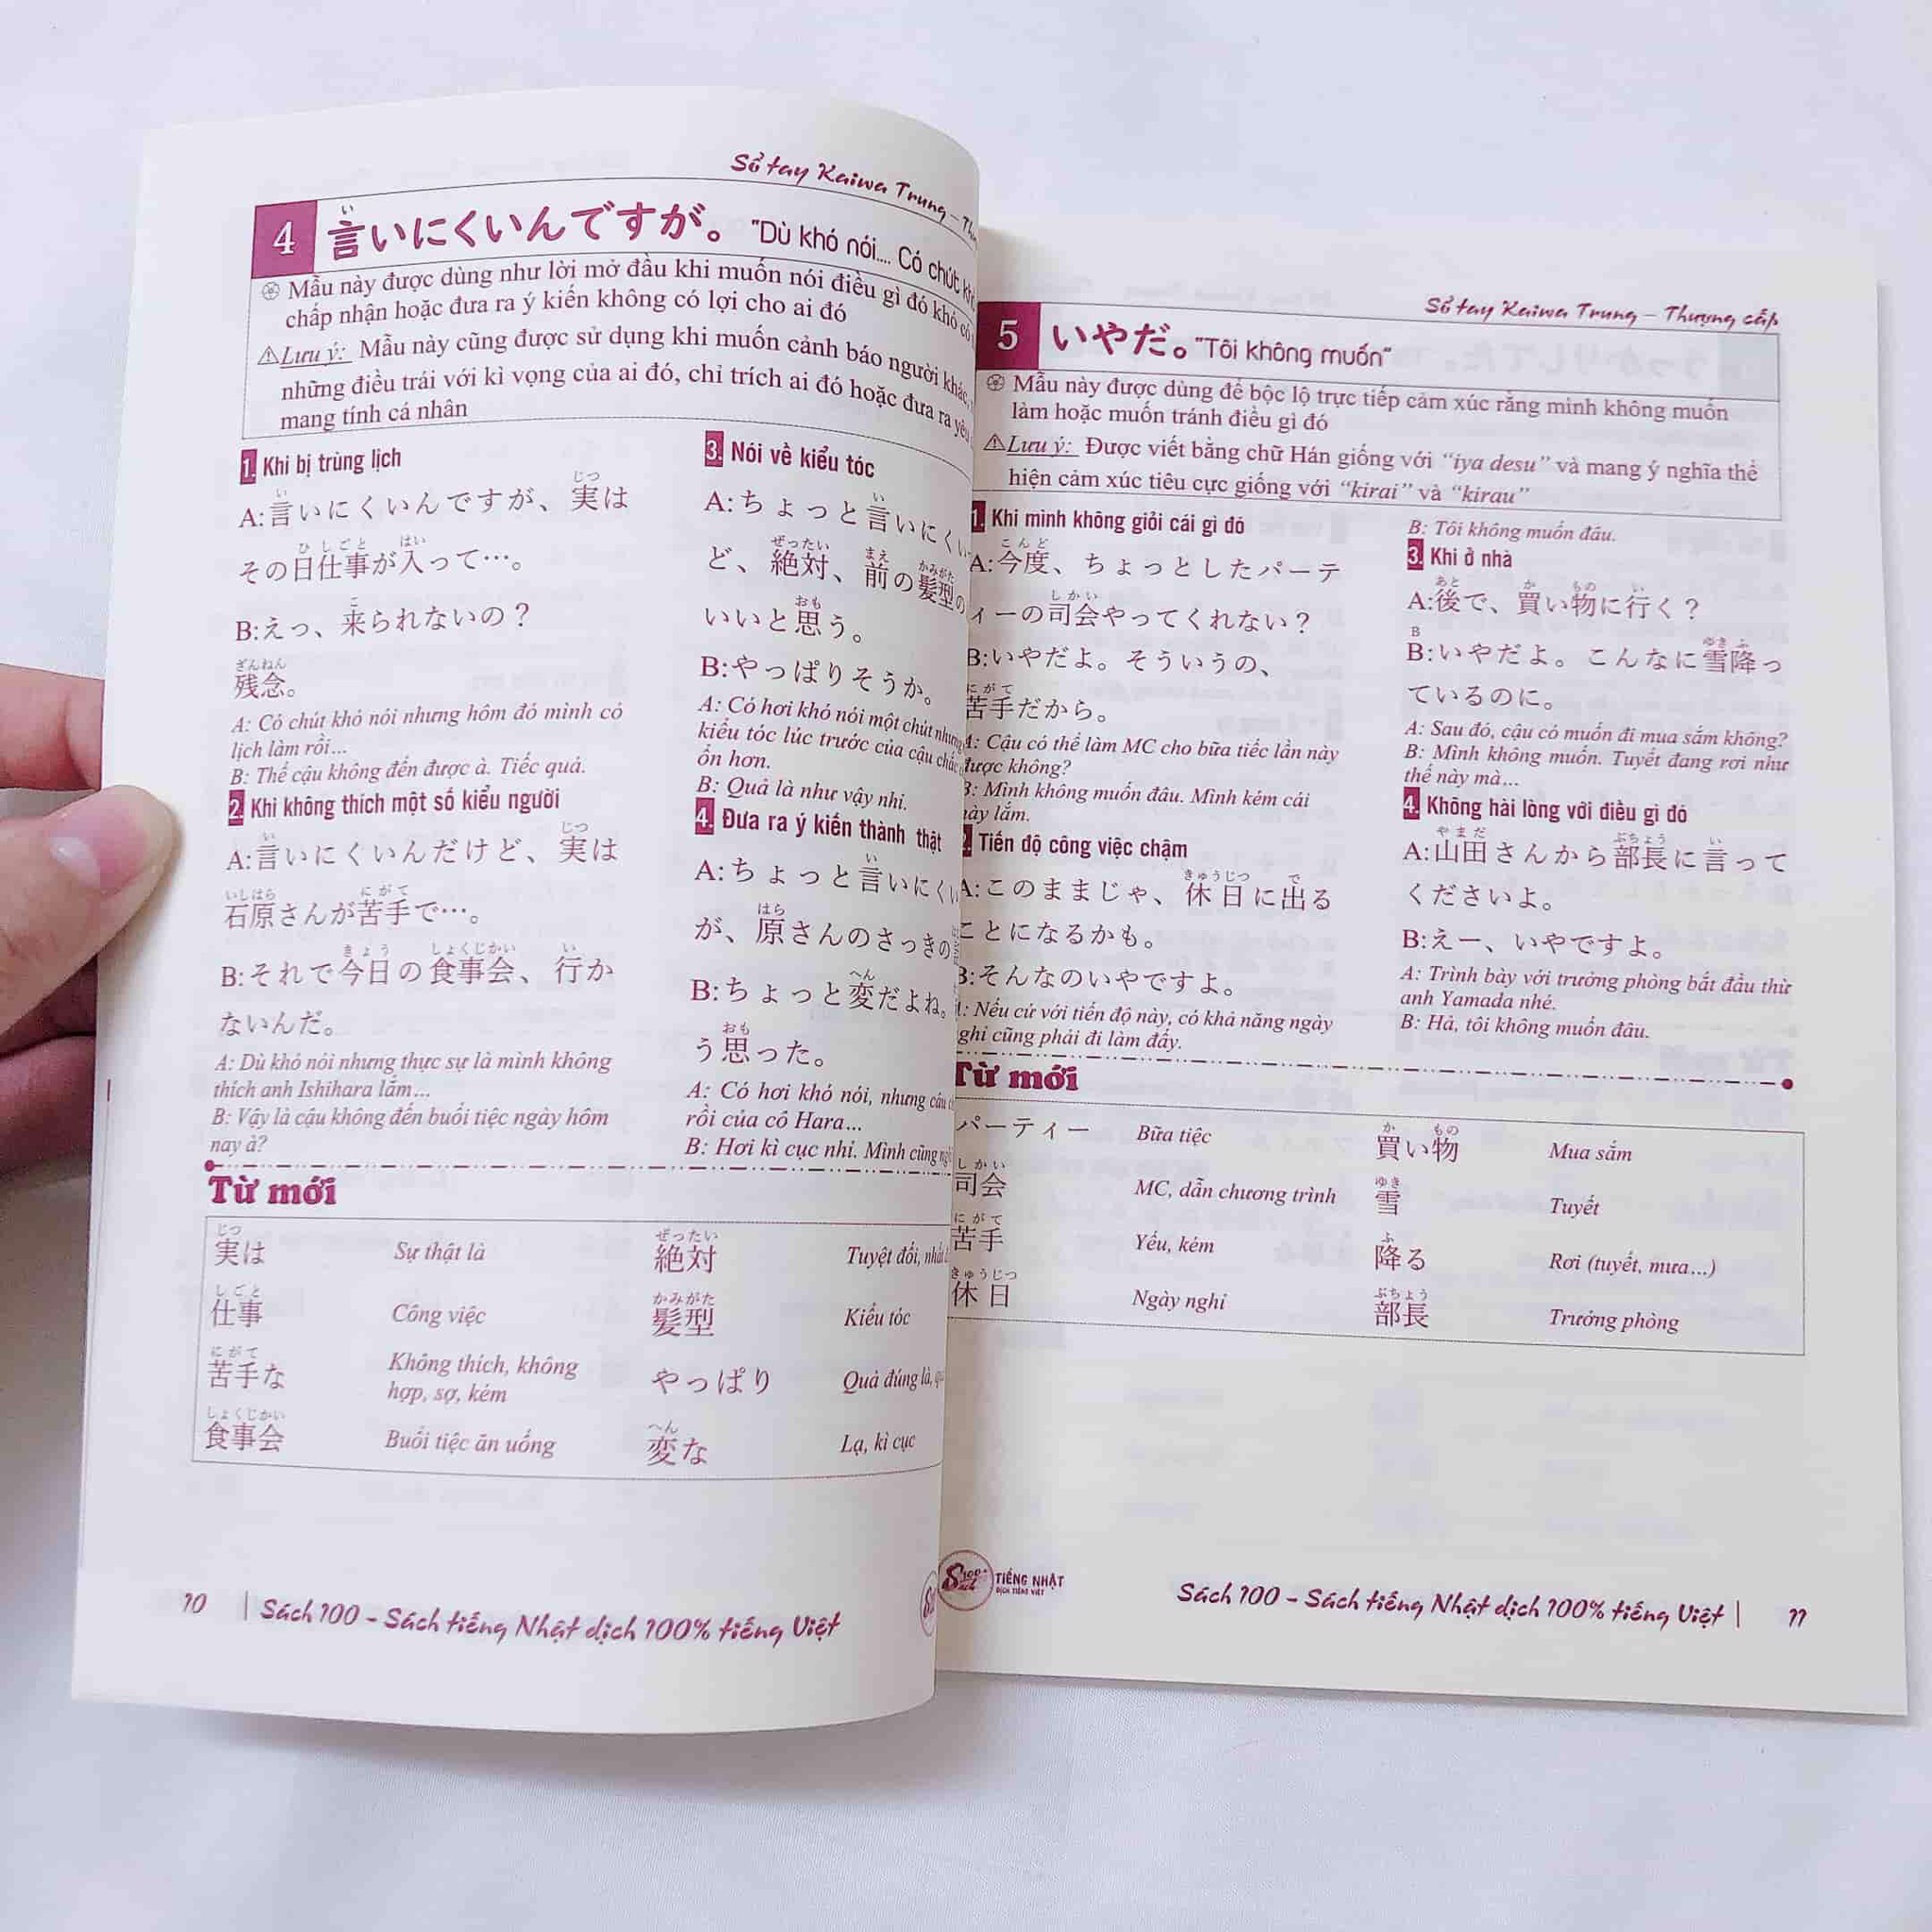 Sổ tay Kaiwa Trung –
4 言いにくいんですが。 "Dù khó nói.... Có chút
Mẫu này được dùng như lời mở đầu khi muốn nói điều gì đó khó có
chấp nhận hoặc đưa ra ý kiến không có lợi cho ai đó
Lưu ý: Mẫu này cũng được sử dụng khi muốn cảnh báo người khác,
những điều trái với kì vọng của ai đó, chỉ trích ai đó hoặc đưa ra yêu
mang tính cá nhân
1. Khi bị trùng lịch
A:言いにくいんですが、実は
その日仕事が入って…。
B:えっ、来られないの？
残念。
A: Có chút khó nói nhưng hôm đó mình có
lịch làm rồi...
B: Thế cậu không đến được à. Tiếc quá.
2. Khi không thích một số kiểu người
A:言いにくいんだけど、実は
石原さんが苦手で…。
B:それで今日の食事会、行か
ないんだ。
A: Dù khó nói nhưng thực sự là mình không
thích anh Ishihara lắm...
B: Vậy là cậu không đến buổi tiệc ngày hôm
nay à?
3. Nói về kiểu tóc
A:ちょっと言いにくい
ど、絶対、前の髪型の
いいと思う。
B:やっぱりそうか。
A: Có hơi khó nói một chút nhưng
kiểu tóc lúc trước của cậu chắc
ổn hơn.
B: Quả là như vậy nhỉ.
4. Đưa ra ý kiến thành thật
A:ちょっと言いにくい
が、原さんのさっきの
B:ちょっと変だよね。
う思った。
A: Có hơi khó nói, nhưng câu
rồi của cô Hara...
B: Hơi kì cục nhỉ. Mình cũng
Từ mới
実は Sự thật là 絶対 Tuyệt đối,
仕事 Công việc 髪型 Kiểu tóc
苦手な Không thích, không
hợp, sợ, kém やっぱり Quả đúng là,
食事会 Buổi tiệc ăn uống 変な Lạ, kì cục
10 | Sách 100 – Sách tiếng Nhật dịch 100% tiếng Việt
Sổ tay Kaiwa Trung – Thượng cấp
5 いやだ。"Tôi không muốn"
Mẫu này được dùng để bộc lộ trực tiếp cảm xúc rằng mình không muốn
làm hoặc muốn tránh điều gì đó
Lưu ý: Được viết bằng chữ Hán giống với “iya desu” và mang ý nghĩa thể
hiện cảm xúc tiêu cực giống với “kirai” và “kirau”
1. Khi mình không giỏi cái gì đó
A:今度、ちょっとしたパーテ
ィーの司会やってくれない？
B:いやだよ。そういうの、
苦手だから。
A: Cậu có thể làm MC cho bữa tiệc lần này
được không?
B: Mình không muốn đâu. Mình kém cái
này lắm.
2. Tiến độ công việc chậm
A:このままじゃ、休日に出る
ことになるかも。
B:そんなのいやですよ。
A: Nếu cứ với tiến độ này, có khả năng ngày
nghỉ cũng phải đi làm đấy.
B: Tôi không muốn đâu.
3. Khi ở nhà
A:後で、買い物に行く？
B:いやだよ。こんなに雪降っ
ているのに。
A: Sau đó, cậu có muốn đi mua sắm không?
B: Mình không muốn. Tuyết đang rơi như
thế này mà...
4. Không hài lòng với điều gì đó
A:山田さんから部長に言って
くださいよ。
B:えー、いやですよ。
A: Trình bày với trưởng phòng bắt đầu thử
anh Yamada nhé.
B: Hả, tôi không muốn đâu.
Từ mới
パーティー Bữa tiệc 買い物 Mua sắm
司会 MC, dẫn chương trình 雪 Tuyết
苦手 Yếu, kém 降る Rơi (tuyết, mưa...)
休日 Ngày nghỉ 部長 Trưởng phòng
TIẾNG NHẬT
DỊCH TIẾNG VIỆT
Sách 100 – Sách tiếng Nhật dịch 100% tiếng Việt | 11